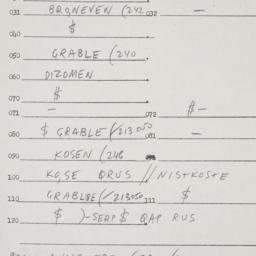 031 BRO,NEVEN (242 032 —
040 $
050 GRABLE (240
060 DIZOMEN
070 $
071 — 072 $—
080 $ GRABLE (/213050 081 —
090 KOSEN (246
100 KO,SE QRUS // NISTKOSTE
110 GRABLEE(/213050 111 $
120 $ )-SERP $ QAP RUS